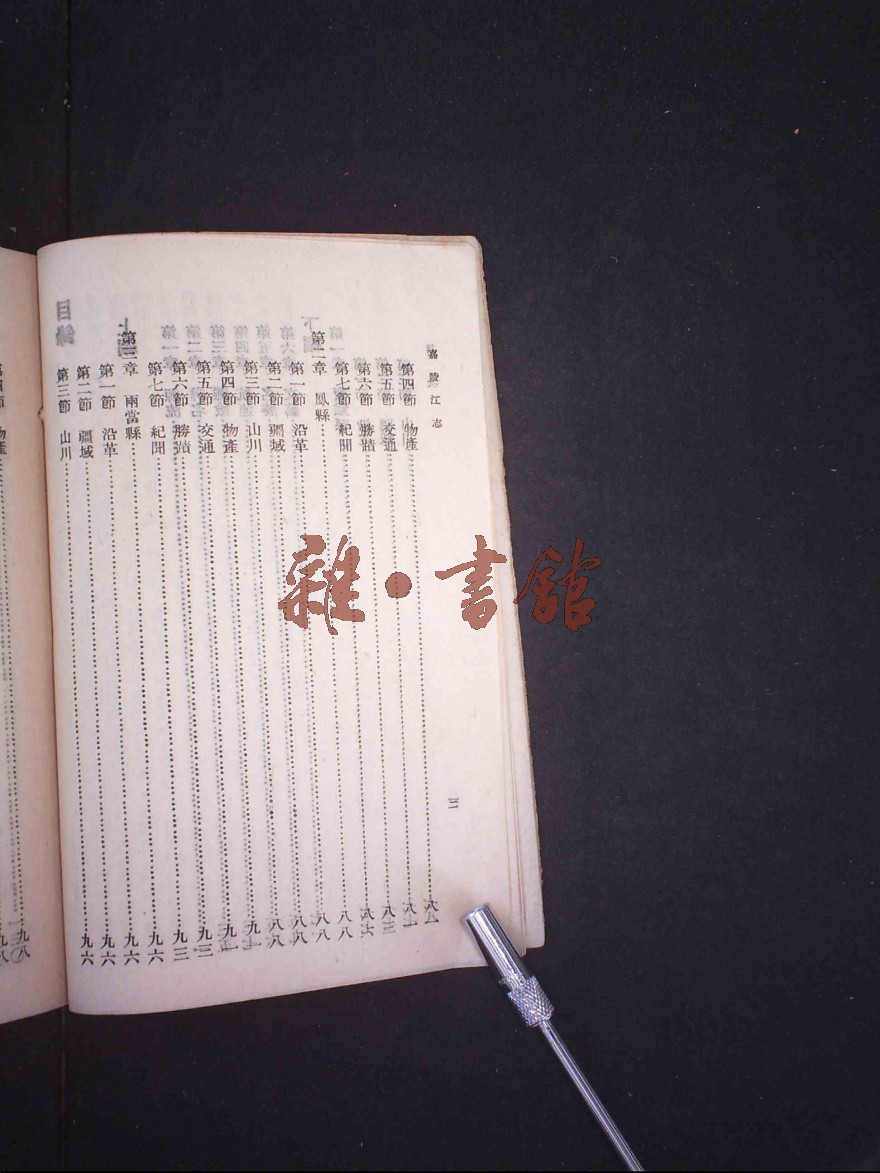 嘉陵江志
二
第四節 物產
第五節 交通
第六節 勝蹟 八七
第七節 紀聞 八八
第二章 鳳縣 八八
第一節 沿革 八八
第二節 疆域 八八
第三節 山川
第四節 物產
第五節 交通
第六節 勝蹟 九三
第七節 紀聞 九六
第三章 兩當縣 九六
第一節 沿革 九六
第二節 疆域 九六
第三節 山川 九六
物產 九八
雜·書館